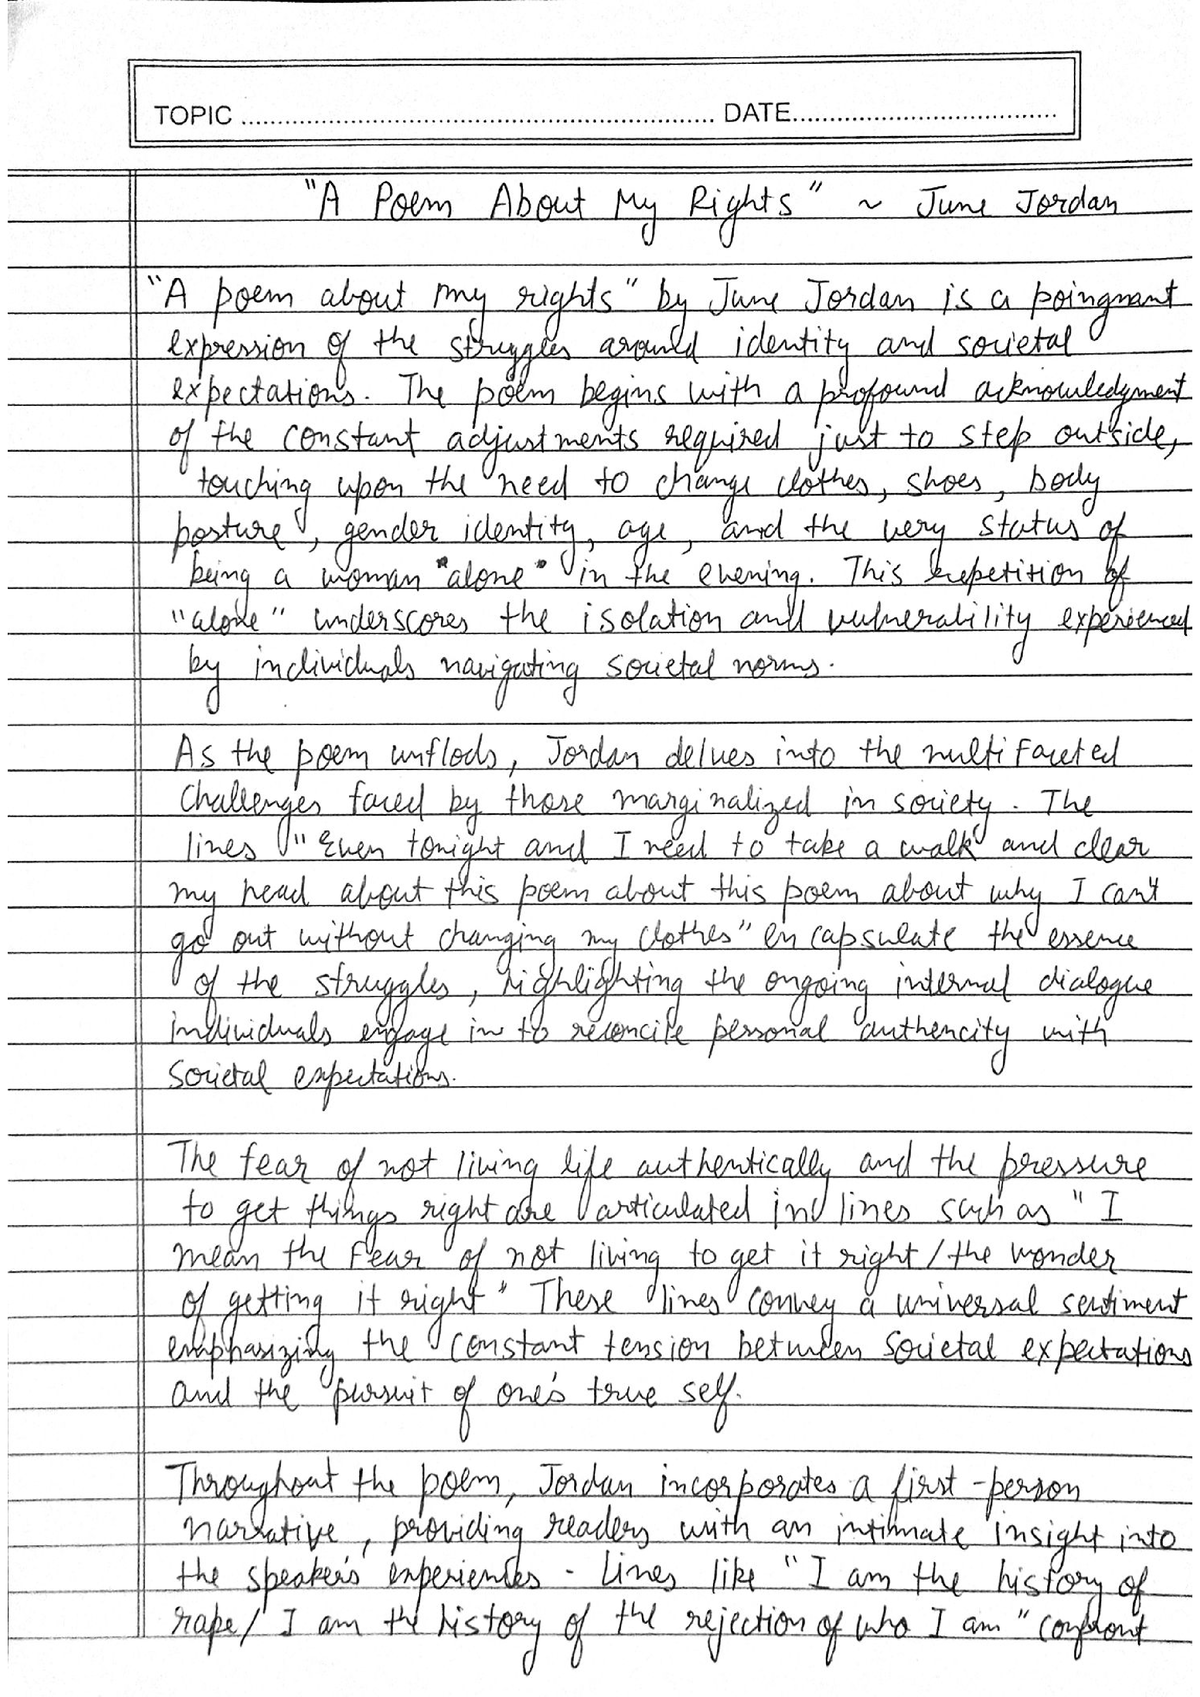 TOPIC ................................................................ DATE....................................
"A Poem About My Rights" ~ June Jordan
"A poem about my rights" by June Jordan is a poingnant
expression of the struggles around identity and societal
expectations. The poem begins with a profound acknowledgment
of the constant adjustments required just to step outside,
touching upon the need to change clothes, shoes, body
posture, gender identity, age, and the very status of
being a woman "alone" in the evening. This repetition of
"alone" underscores the isolation and vulnerability experienced
by individuals navigating societal norms.
As the poem unflods, Jordan delves into the multifaceted
challenges faced by those marginalized in society. The
lines "Even tonight and I need to take a walk and clear
my head about this poem about this poem about why I can't
go out without changing my clothes" encapsulate the essence
of the struggles, highlighting the ongoing internal dialogue
individuals engage in to reconcile personal authencity with
societal expectations.
The fear of not living life authentically and the pressure
to get things right are articulated in lines such as "I
mean the fear of not living to get it right/the wonder
of getting it right" These lines convey a universal sentiment
emphasizing the constant tension between societal expectations
and the pursuit of one's true self.
Throughout the poem, Jordan incorporates a first-person
narrative, providing readers with an intimate insight into
the speaker's experiences. Lines like "I am the history of
rape/ I am the history of the rejection of who I am" confront